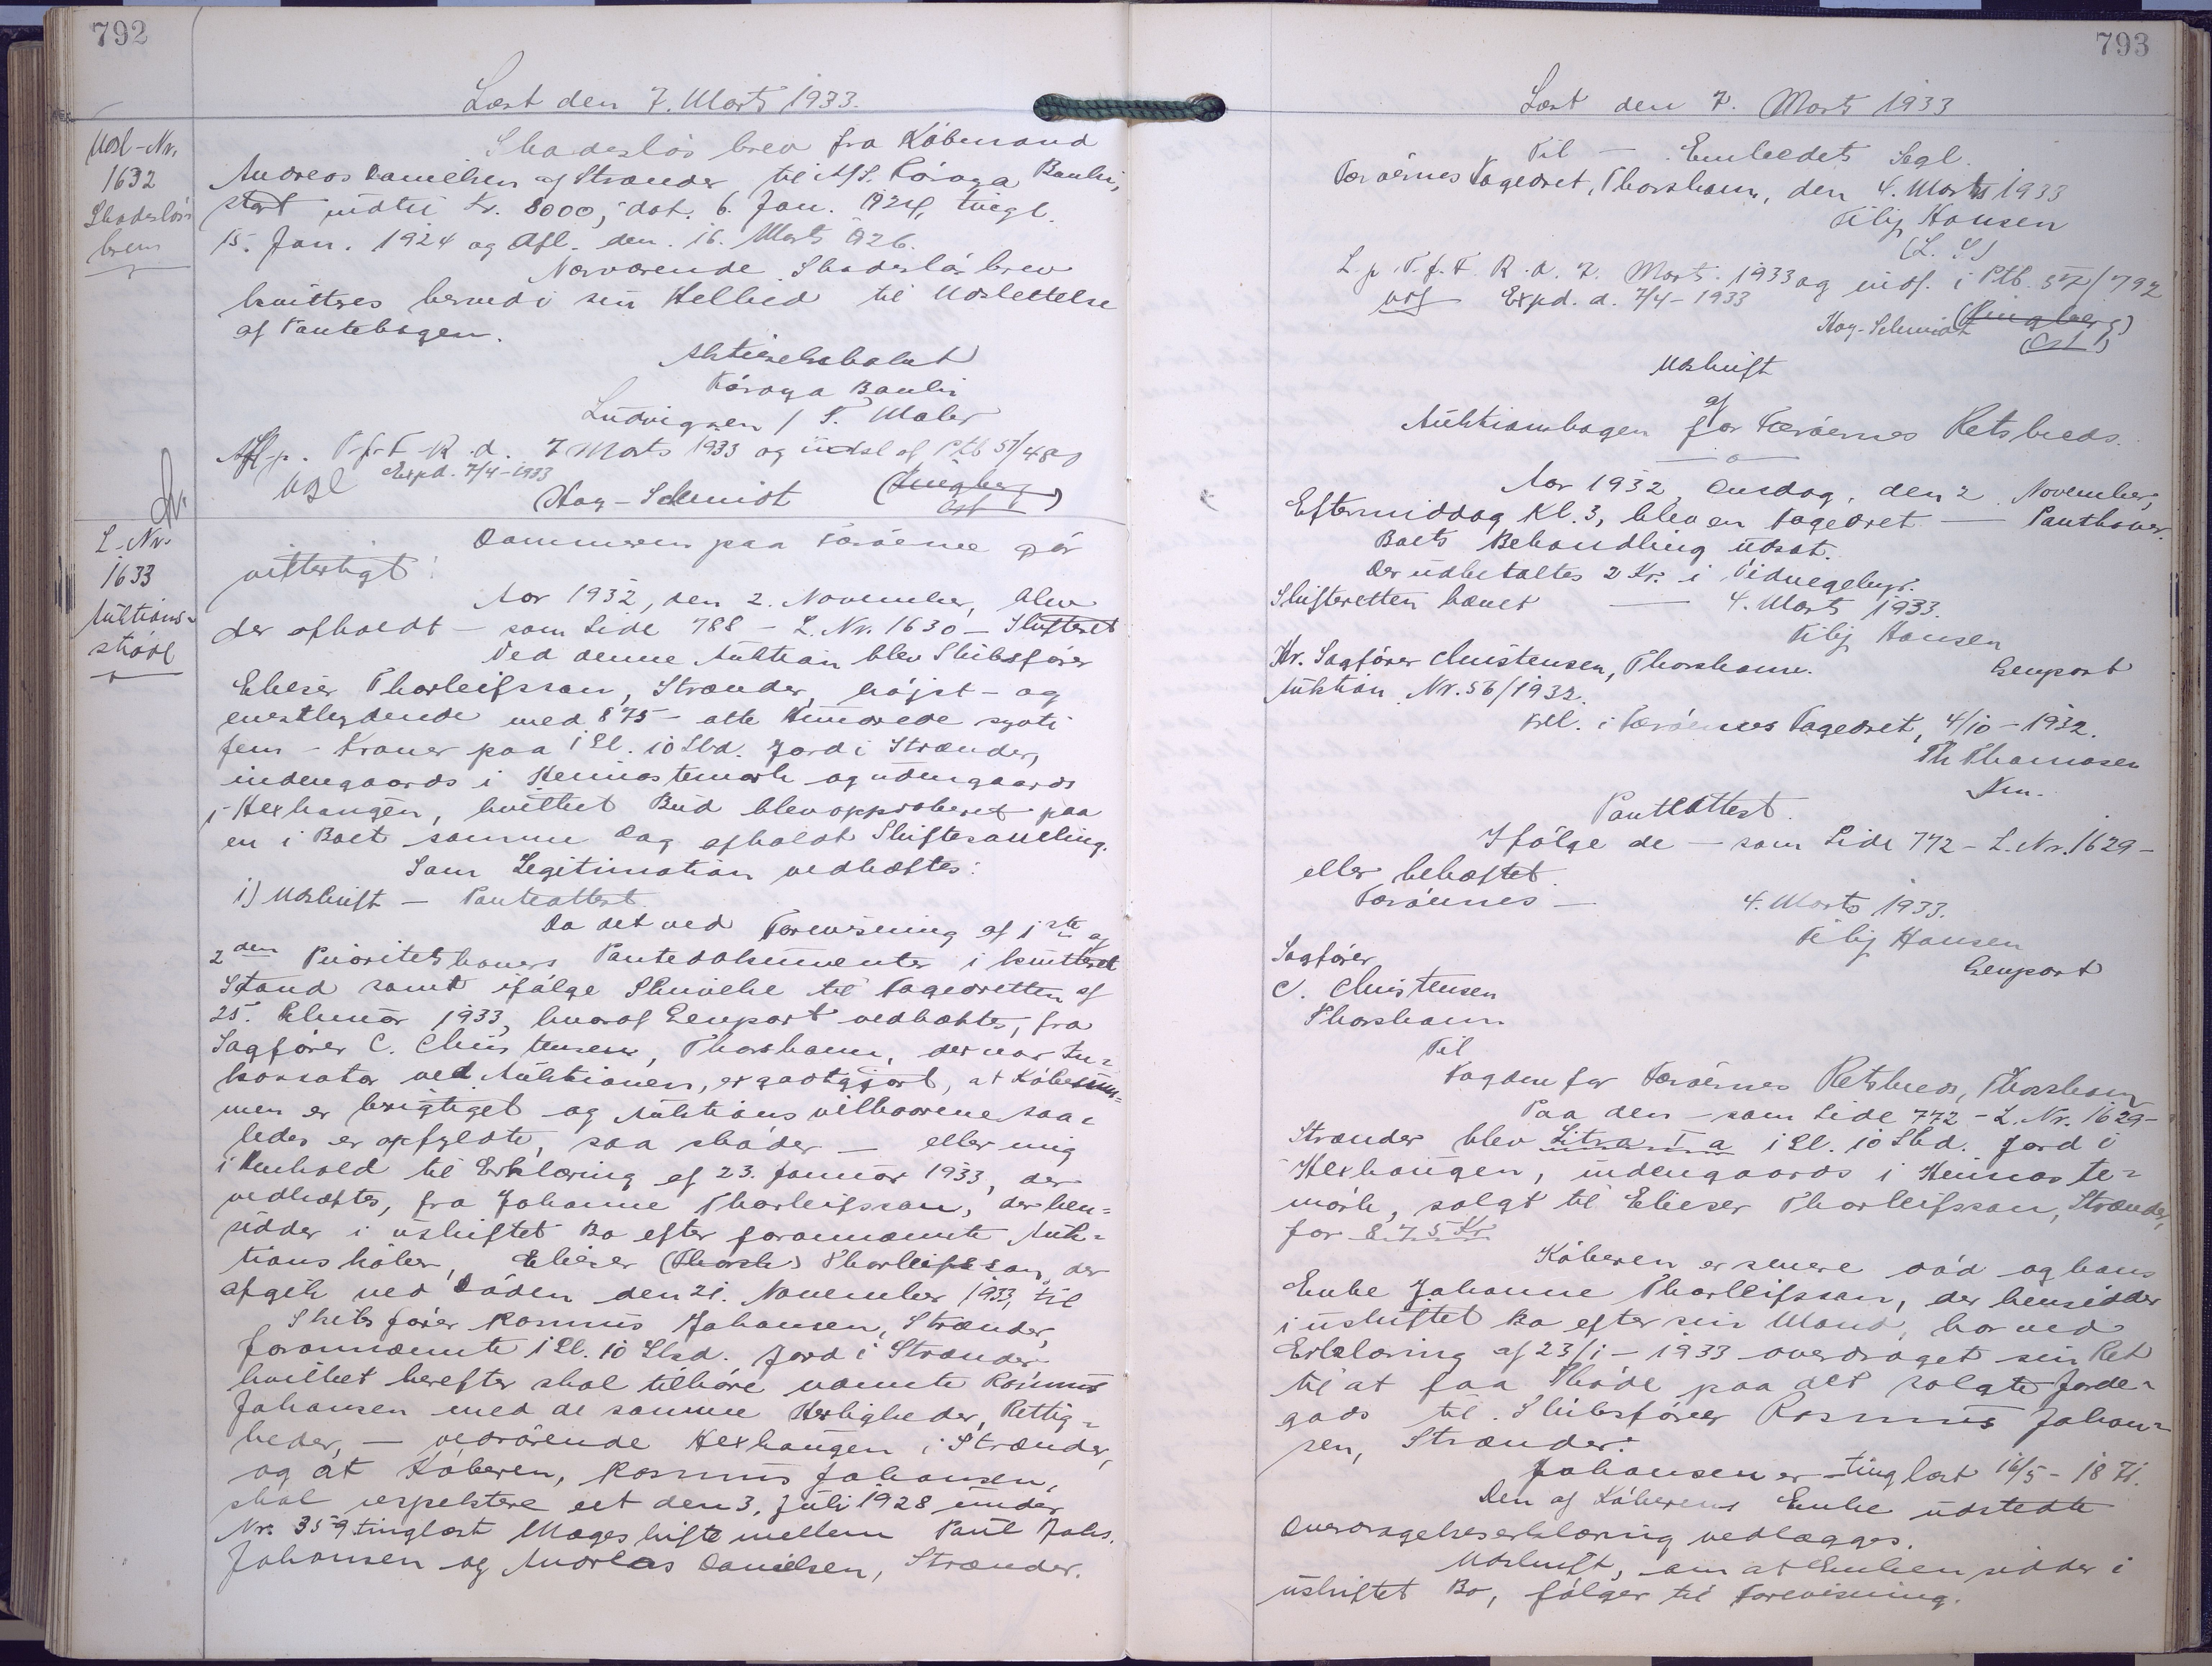 792
Læst den 7. Marts 1933.
Udsl-Nr.
1632
Skadeslös-
brev
Skadeslösbrev fra Købmand
Andreas Danielsen af Strænder til A/S. Föroya Banki,
stort indtil Kr. 8000, dat. 6. Jan. 1924, tingl.
15. Jan. 1924 og Afl. den. 16. Marts 1926.
Nærværende Skadeslösbrev
kvitteres herved i sin Helhed til Udslettelse
af Pantebogen.
Aktieselskabet
Föroya Banki
Ludvigsen / T. Maler
Afl. p. T. f. F. R. d. 7 Marts 1933 og udsl af Ptb 57/480
Expd. 7/4-1933
Høg-Schmidt (Ringberg)
cst
L. Nr.
1633
Auktions-
skøde
Dommeren paa Færöerne gör
vitterligt:
Aar 1932, den 2. November, blev
der afholdt - som Side 788 - L. Nr. 1630 - Skifteret
Ved denne Auktion blev Skibsfører
Elieser Thorleifsson, Strænder, højst- og
enestbydende med 875 - otte Hundrede syvti
fem - Kroner paa 1 Gl. 10 Skd. Jord i Strænder,
indengaards i Heimastemørk og udengaards
i Hexhaugen, hvilket Bud blev approberet paa
en i Boet samme Dag afholdt Skiftesamling.
Som Legitimation vedhæftes:
1) Udskrift - Panteattest.
Da det ved Forevisning af 1ste og
2den Prioritetshavers Pantedokumenter i kvitteret
Stand samt ifølge Skrivelse til Fogedretten af
25. Februar 1933, hvoraf Genpart vedhæftes, fra
Sagfører C. Christensen, Thorshavn, der var In-
kassator ved Auktionen, er godtgjort, at Købesum-
men er berigtiget og Auktionsvilkaarene saa-
ledes er opfyldte, saa skøder - eller mig
i Henhold til Erklæring af 23. Januar 1933, der
vedhæftes, fra Johanne Thorleifsson, der hen-
sidder i uskiftet Bo efter forannævnte Auk-
tionskøber, Elieser (Thorsh) Thorleifsson, der
afgik ved Døden den 21. November 1933, til
Skibsfører Rasmus Johansen, Strænder,
forannævnte 1 Gl. 10 Skd. Jord i Strænder,
hvilket herefter skal tilhøre nævnte Rasmus
Johansen med de samme Herligheder, Rettig-
heder, - vedrörende Hexhaugen i Strænder,
og at Køberen, Rasmus Johansen,
skal respektere et den 3. Juli 1928 under
Nr. 359 tinglæst Mageskifte mellem Paul Johs.
Johansen og Andreas Danielsen, Strænder.
793
Læst den 7. Marts 1933
Til - Embedets Segl.
Færöernes Fogedret, Thorshavn, den 4. Marts 1933
Filip Hansen
(L. S)
L. p. T. f. F. R. d. 7. Marts 1933 og indf. i Ptb. 57/792
Expd. d. 7/4-1933
Høg-Schmidt (Ringberg)
cst
Udskrift
af
Auktionsbogen for Færöernes Retskreds.
Aar 1932, Onsdag, den 2 November,
Eftermiddag Kl. 3, blev en Fogedret - Panthaver.
Boets Behandling udsat.
Der udbetaltes 2 Kr. i Vidnegebyr.
Skifteretten hævet - 4. Marts 1933.
Filip Hansen
Genpart
Hr. Sagfører Christensen, Thorshavn.
Auktion Nr. 56/1932.
Prl. i Færöernes Fogedret, 4/10-1932.
Th Thomasen
Km.
Panteattest.
Ifölge de - som Side 772 - L. Nr. 1629 -
eller behæftet.
Færöernes - 4. Marts 1933.
Filip Hansen
Genpart
Sagfører
C. Christensen
Thorshavn
Til
Fogden for Færöernes Retskreds, Thorshavn
Paa den - som Side 772 - L. Nr. 1629 -
Strænder blev Litra I a 1 Gl. 10 Skd. Jord i
Hexhaugen, indengaards i Heimaste-
mörk, solgt til Elieser Thorleifsson, Strænder,
for 875 Kr
Køberen er senere død og hans
Enke Johanne Thorleifsson, der hensidder
i uskiftet Bo efter sin Mand, har ved
Erklæring af 23/1-1933 overdraget sin Ret
til at faa Skøde paa det solgte Jorde-
gods til Skibsfører Rasmus Johan-
sen, Strænder.
Johansen er tinglæst 16/5-1871.
Den af Køberens Enke udstedte
Overdragelseserklæring vedlægges.
Udskrift, om at Enken sidder i
uskiftet Bo, følger til Forevisning.